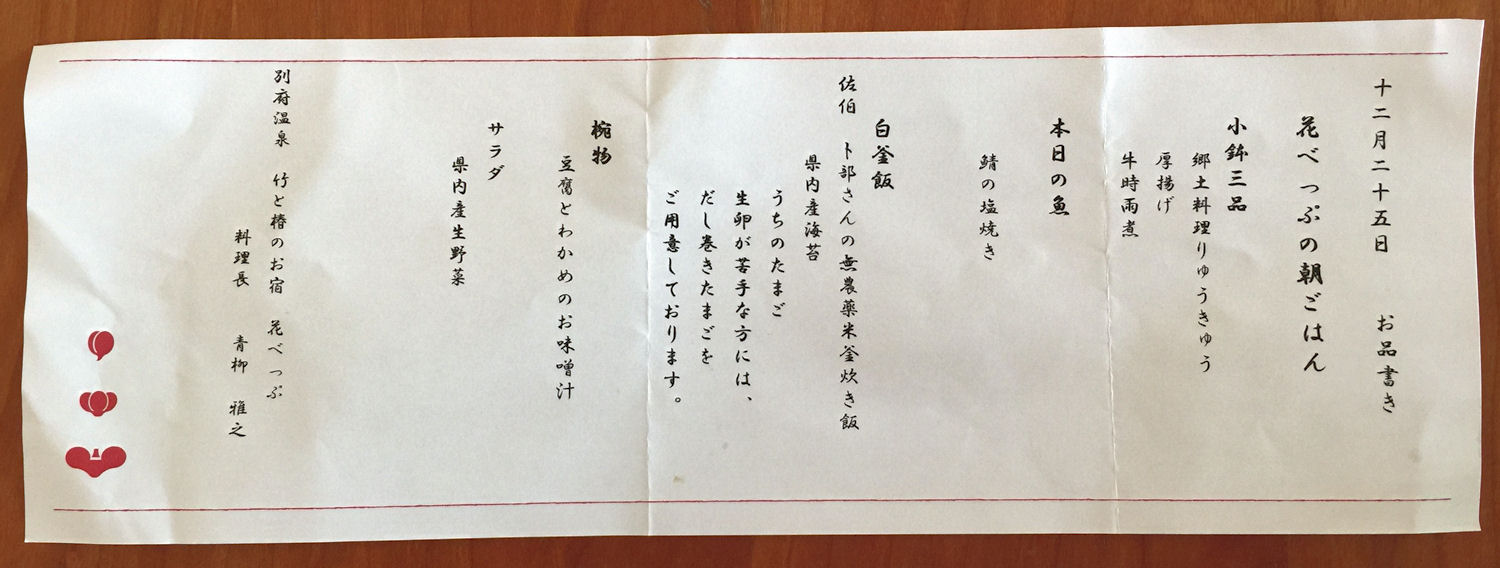 十二月二十五日　お品書き
花べっぷの朝ごはん
小鉢三品
郷土料理りゅうきゅう
厚揚げ
牛時雨煮
本日の魚
鯖の塩焼き
白釜飯
佐伯　卜部さんの無農薬米釜炊き飯
県内産海苔
うちのたまご
生卵が苦手な方には、
だし巻きたまごを
ご用意しております。
椀物
豆腐とわかめのお味噌汁
サラダ
県内産生野菜
別府温泉　竹と椿のお宿　花べっぷ
料理長　青柳　雅之